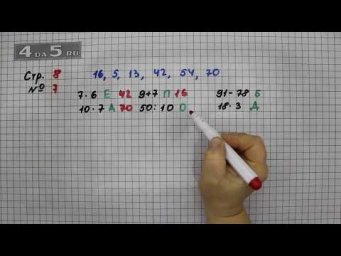 4 DA 5.RU
Стр. 8 16, 5, 13, 42, 54, 70
№ 7 7·6 Е 42 9+7 П 16 91-78 Б
10·7 А 70 50:10 О 18·3 Д